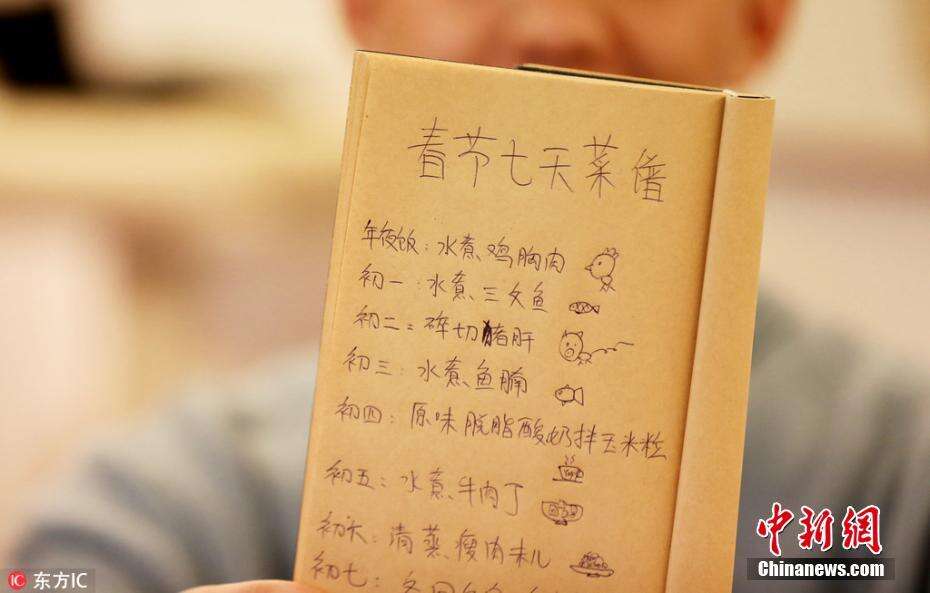 春节七天菜谱
年夜饭：水煮鸡胸肉
初一：水煮三文鱼
初二：碎切猪肝
初三：水煮鱼腩
初四：原味脱脂酸奶拌玉米粒
初五：水煮牛肉丁
初六：清蒸瘦肉末儿
初七：
中新网
Chinanews.com
IC 东方IC